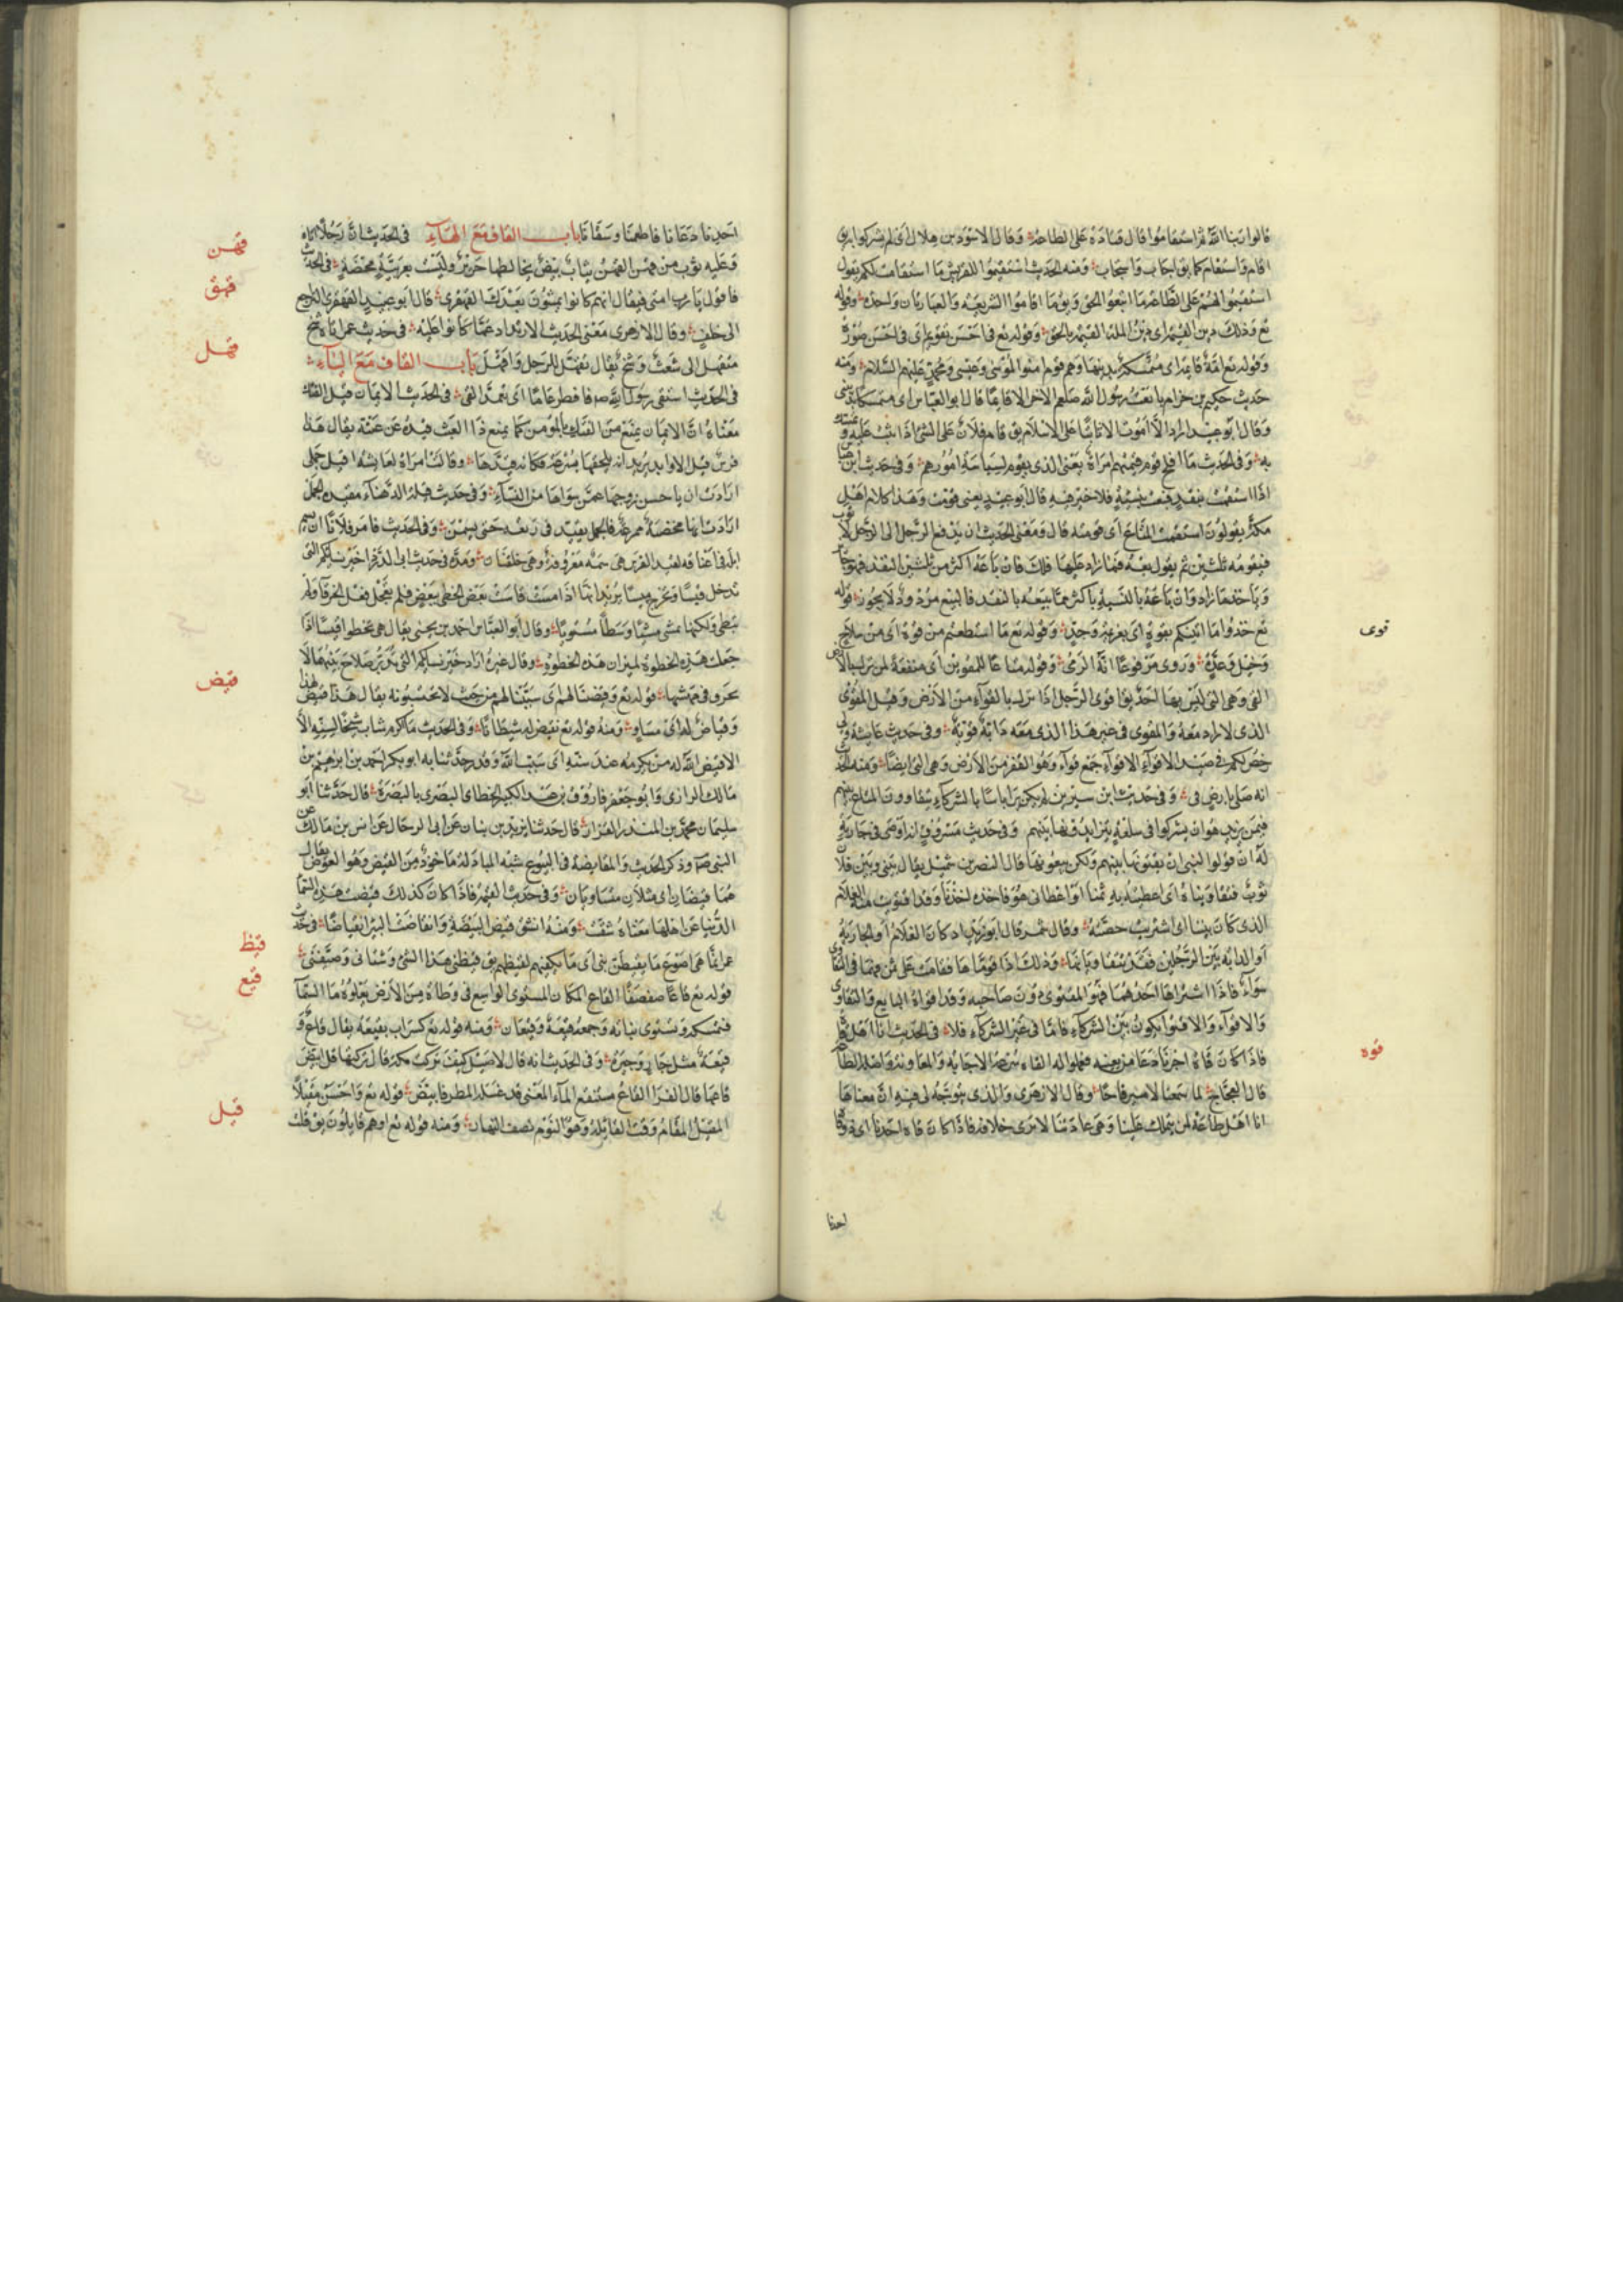 قالوا ربنا الله ثم استقاموا قال قتادة على الطاعة وقال الاسود بن هلال اى لم يشركوا يق
اقام واستقام كما يق اجاب واستجاب ومنه الحديث استقيموا لقريش ما استقامت لكم يقول
استقيموا لهم على الطاعة ما اتبعوا الحق ويوما اقاموا الشريعة والعبارتان واحدة وقوله
تع وذلك دين القيمة اى دين الملة القيمة بالحق وقوله تع فى احسن تقويم اى فى احسن صورة
وقوله تع امة قائمة اى متمسكة بدينها وهم قوم امنوا بموسى وعيسى ومحمد عليهم السلام ومنه
حديث حكيم بن حزام بايعت رسول الله صلعم الا اخر الا قائما قال ابو العباس اى متمسكا بدينى
وقال ابو عبيد اراد الا اموت الا ثابتا على الاسلام يق قام فلان على الشئ اذا ثبت عليه وتمسك
به وفى الحديث ما افلح قوم قيمتهم امراة يعنى الذى يقوم لسياسة امورهم وفى حديث ابن عباس
اذا استقمت بنقد فبعت بنسيئة فلا خير فيه قال ابو عبيد يعنى قومت وهذا كلام اهل
مكة يقولون استقمت المتاع اى قومته قال ومعنى الحديث ان يدفع الرجل الى الرجل ثوبا
فيقومه ثلثين ثم يقول بعه فما زاد عليها فلك فان باعه اكثر من ثلثين بالنقد فهو جائز
وياخذ ما زاد وان باعه بالنسيئة باكثر مما يبيعه بالنقد فالبيع مردود لا يجوز قوله
تع خذوا ما اتيناكم بقوة اى بعزيمة وجد وقوله تع ما استطعتم من قوة اى من سلاح
قوى
وخيل وعدة وروى مرفوعا انه الرمى وقوله متاعا للمقوين اى منفعة لمن نزل بالارض
القى وهى التى ليس بها احد يق اقوى الرجل اذا نزل بالقواء من الارض وقيل المقوى
الذى لا زاد معه والمقوى فى غير هذا الذى معه دابة قوية وفى حديث عائشة وبى
رخص لكم فى صعيد الاقواء الاقواء جمع قواء وهو القفر من الارض وهى القى ايضا ومنه الحديث
انه صلى بارض قى وفى حديث ابن سيرين لم يكن يرى باسا بالشركاء يتقاوون المتاع بينهم
فيمن يزيد هو ان يشتركوا فى سلعة يتزايدونها بينهم وفى حديث مسروق انه اوصى فى جارية
له ان قولوا لبنى ان يقتوونها بينهم ولكن بيعوها قال النضر بن شميل يقال بينى وبين فلان
ثوب فتقاويناه اى اعطيته به ثمنا او اعطانى هو فاخذه احدنا وقد اقتويت منه الغلام
الذى كان بيننا اى اشتريت حصته وقال شمر قال ابو زيد اذ كان الغلام او الجارية
او الدابة بين الرجلين فقد يتقاويانها وذلك اذا قوماها فقامت على ثمن فهما فى التقاوى
سواء فاذا اشتراها احدهما فهو المقتوى دون صاحبه وقد اقواه البايع والتقاوى
والاقواء والاقتواء يكون بين الشركاء فاما فى غير الشركاء فلا فى الحديث انا اهل قاه
فاذا كان قاه احدنا دعا من يعينه فعملوا له القاه سرعة الاجابة والمعاونة واصله الطاعة
قوه
قال العجاج لما سمعنا لامير قاها وقال الازهرى والذى يتوجه لى فيه ان معناها
انا اهل طاعة لمن يتملك علينا وهى عادتنا لا نرى خلافه فاذا كان قاه احدنا اى ذو قاه
احدنا
احدنا دعانا فاطعمنا وسقانا باب القاف مع الهاء فى الحديث ان رجلا اتاه
قهن
وعليه ثوب من قهز القهز ثياب بيض يخالطها حرير وليست بعربية محضة فى الحديث
قهق
فاقول يا رب امتى فيقال انهم كانوا يمشون بعدك القهقرى قال ابو عبيد القهقرى الراجع
الى خلف وقال الازهرى معنى الحديث الارتداد عما كانوا عليه فى حديث عمر اتاه شيخ
قهل
متقهل اى شعث وسخ يقال تقهل الرجل واقهل باب القاف مع الياء
فى الحديث استقى رسول الله صم فافطر عامدا اى يتعمد القى فى الحديث الايمان قيد الفتك
معناه ان الايمان يمنع من الفتك بالمومن كما يمنع ذا العيث قيده عن عيثه يقال هذا
فرس قيد الاوابد يريد انه يلحقها بسرعة فكانه قيدها وقالت امراة لعائشة اقيد جملى
ارادت ان ياخس زوجها عمن سواها من النساء وفى حديث قيلة الدهناء مقيد الجمل
ارادت انها مخصبة ممرعة فالجمل يقيد فى ربعه حتى يسمن وفى الحديث فامر فلانا ان يسم
ابله فى اعناقه لقيد الفرس هى سمة معروفة وهى حلقتان ومدة فى حديث ابى الدرداء خير نسائكم التى
تدخل قيسا وتخرج ميسا يريد انها اذا مست قاست بعض الخطى ببعض فلم تعجل فعل الخرقاء ولم
تبطى ولكنها تمشى مشيا وسطا مستويا وقال ابو العباس احمد بن يحيى يقال هى تخطو قيسا اذا
جعلت هذه الخطوة لميزان هذه الخطوة وقال غيره اراد خير نسائكم التى تدبر صلاح بيتها لا
قيض
تخرق فى مهنتها قوله تع وقيضنا لهم اى سببنا لهم من حيث لا يحتسبونه يقال هذا قيض لهذا
وقياض له اى مساو ومنه قوله تع نقيض له شيطانا وفى الحديث ما اكرم شاب شيخا لسنه الا
الا قيض الله له من يكرمه عند سنه اى سبب الله وقد حدثنا به ابو بكر احمد بن ابرهيم بن
مالك الرازى وابو جعفر فاروق بن عبد الكبير الخطابى البصرى بالبصرة قال حدثنا ابو
سليمان محمد بن المنذر القزاز قال حدثنا يزيد بن بنان عن ابى الرحال عن انس بن مالك عن
النبى صم وذكر الحديث والمقايضة فى البيوع شبه المبادلة ماخوذ من القيض وهو العوض يقال
هما قيضان اى مثلان متساويان وفى حديث القيمة فاذا كان كذلك قيضت هذه السماء
الدنيا عن اهلها معناه شقت ومنه انشق قيض البيضة وانقاضت البير انقياضا فى حديث
قيظ
عمر انما هى اصوع ما يقيظن بنى اى ما يكفيهم لقيظهم يق قيظنى هذا الشئ وشتانى وصيفنى
قيع
قوله تع قاعا صفصفا القاع المكان المستوى الواسع فى وطاة من الارض يعلوه ماء السماء
فيمسكه ويستوى نباته وجمعه قيعة وقيعان ومنه قوله تع كسراب بقيعة يقال قاع و
قيعة مثل جار وجيرة وفى الحديث انه قال لاصيل كيف تركت مكة قال تركتها قد ابيض
قاعها قال الفرا القاع مستنقع الماء المعنى قد غسله المطر فابيض قوله تع واحسن مقيلا
قيل
المقيل المقام وقت القائلة وهو النوم نصف النهار ومنه قوله تع او هم قائلون يق قلت